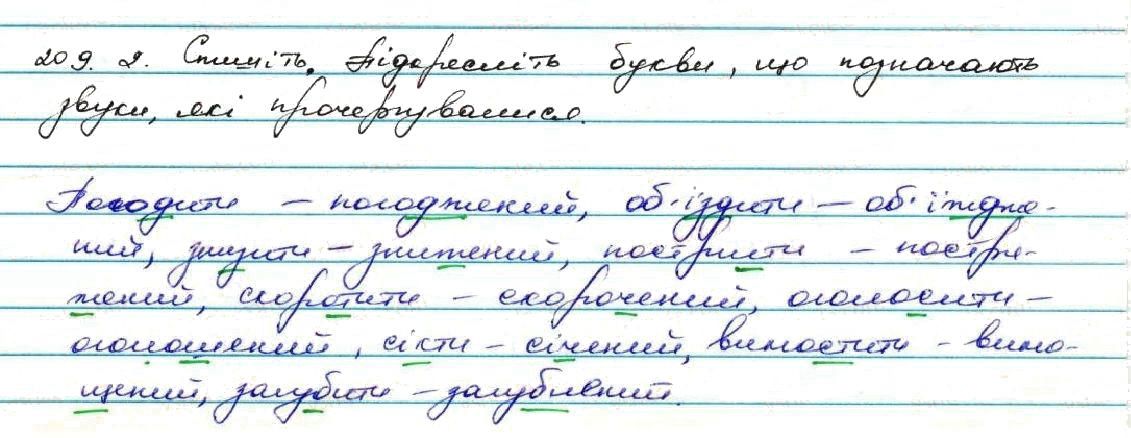 209. 2. Спишіть. Підкресліть букви, що позначають
звуки, які прочергувалися.
Погодити – погоджений, об'їздити – об'їждже-
ний, знизити – знижений, постригти – постри-
жений, скоротити – скорочений, оголосити –
оголошений, сікти – січений, вимостити – вимо-
щений, загубити – загублений.